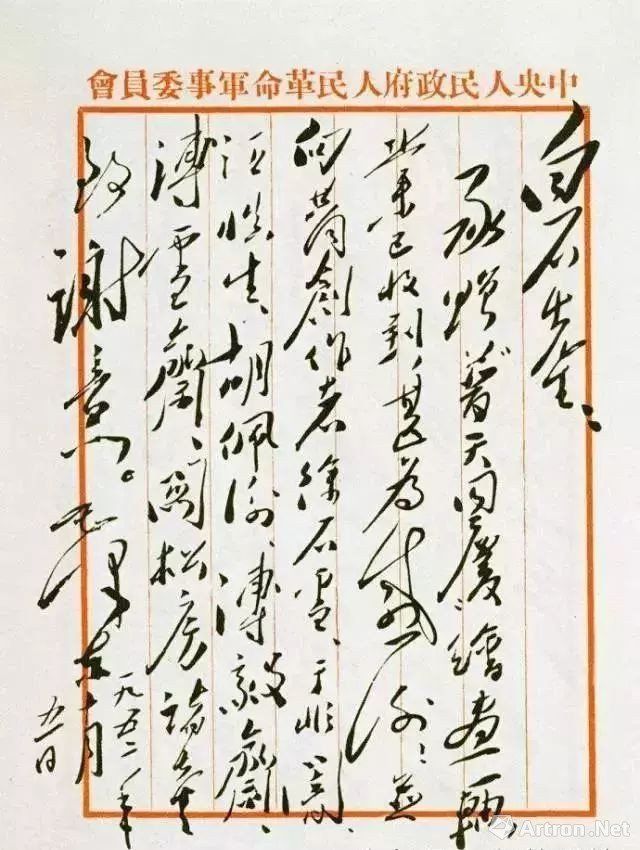 中央人民政府人民革命軍事委員會
白石先生：
承贈“普天同慶”繪畫一軸，
業已收到，甚為感謝！並
向共同創作者徐石雪、于非闇、
汪慎生、胡佩衡、溥毅齋、
溥雪齋、關松房諸先生
致謝意。毛澤東
一九五二年
十月
五日
Artron.Net